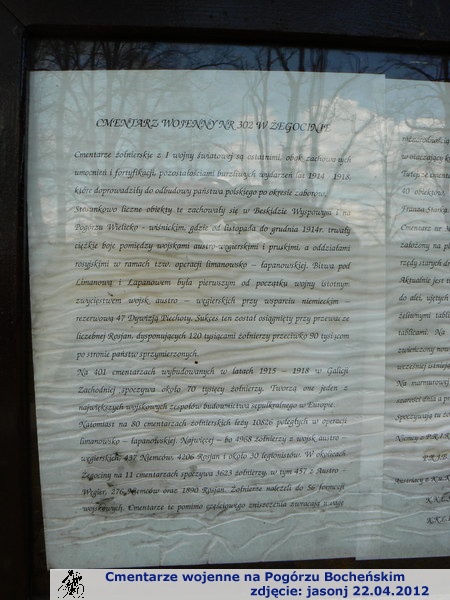 CMENTARZ WOJENNY NR 302 W ŻEGOCINIE
Cmentarze żołnierskie z I wojny światowej są ostatnimi, obok zachowanych
umocnień i fortyfikacji, pozostałościami burzliwych wydarzeń lat 1914 – 1918,
które doprowadziły do odbudowy państwa polskiego po okresie zaborów.
Stosunkowo liczne obiekty te zachowały się w Beskidzie Wyspowym i na
Pogórzu Wielicko – wiśnickim, gdzie od listopada do grudnia 1914r. trwały
ciężkie boje pomiędzy wojskami austro-węgierskimi i pruskimi, a oddziałami
rosyjskimi w ramach tzw. operacji limanowsko – łapanowskiej. Bitwa pod
Limanową i Łapanowem była pierwszym od początku wojny istotnym
zwycięstwem wojsk austro – węgierskich przy wsparciu niemieckim –
rezerwową 47 Dywizją Piechoty. Sukces ten został osiągnięty przy przewadze
liczebnej Rosjan, dysponujących 120 tysiącami żołnierzy przeciwko 90 tysiącom
po stronie państw sprzymierzonych.
Na 401 cmentarzach wybudowanych w latach 1915 – 1918 w Galicji
Zachodniej spoczywa około 70 tysięcy żołnierzy. Tworzą one jeden z
największych wojskowych zespołów budownictwa sepulkralnego w Europie.
Natomiast na 80 cmentarzach żołnierskich leży 10826 poległych w operacji
limanowsko – łapanowskiej. Najwięcej – bo 4968 żołnierzy z wojsk austro –
węgierskich, 437 Niemców, 4206 Rosjan i około 30 legionistów. W okolicach
Żegociny na 11 cmentarzach spoczywa 3623 żołnierzy, w tym 457 z Austro –
Węgier, 276 Niemców oraz 1890 Rosjan. Żołnierze należeli do 56 formacji
wojskowych. Cmentarze te pomimo częściowego zniszczenia zwracają
w otaczający
Tutejsze
40 obiektów.
Franza Starka
Cmentarz nr
założony na
rzędy starych
Aktualnie jest
do alei, ujętych
zielonymi
tablicami. Na
zwieńczony
wcześniej
Na marmurowej
Spoczywają tu
Niemcy z P.R.I.R.
Cmentarze wojenne na Pogórzu Bocheńskim
zdjęcie: jasonj 22.04.2012